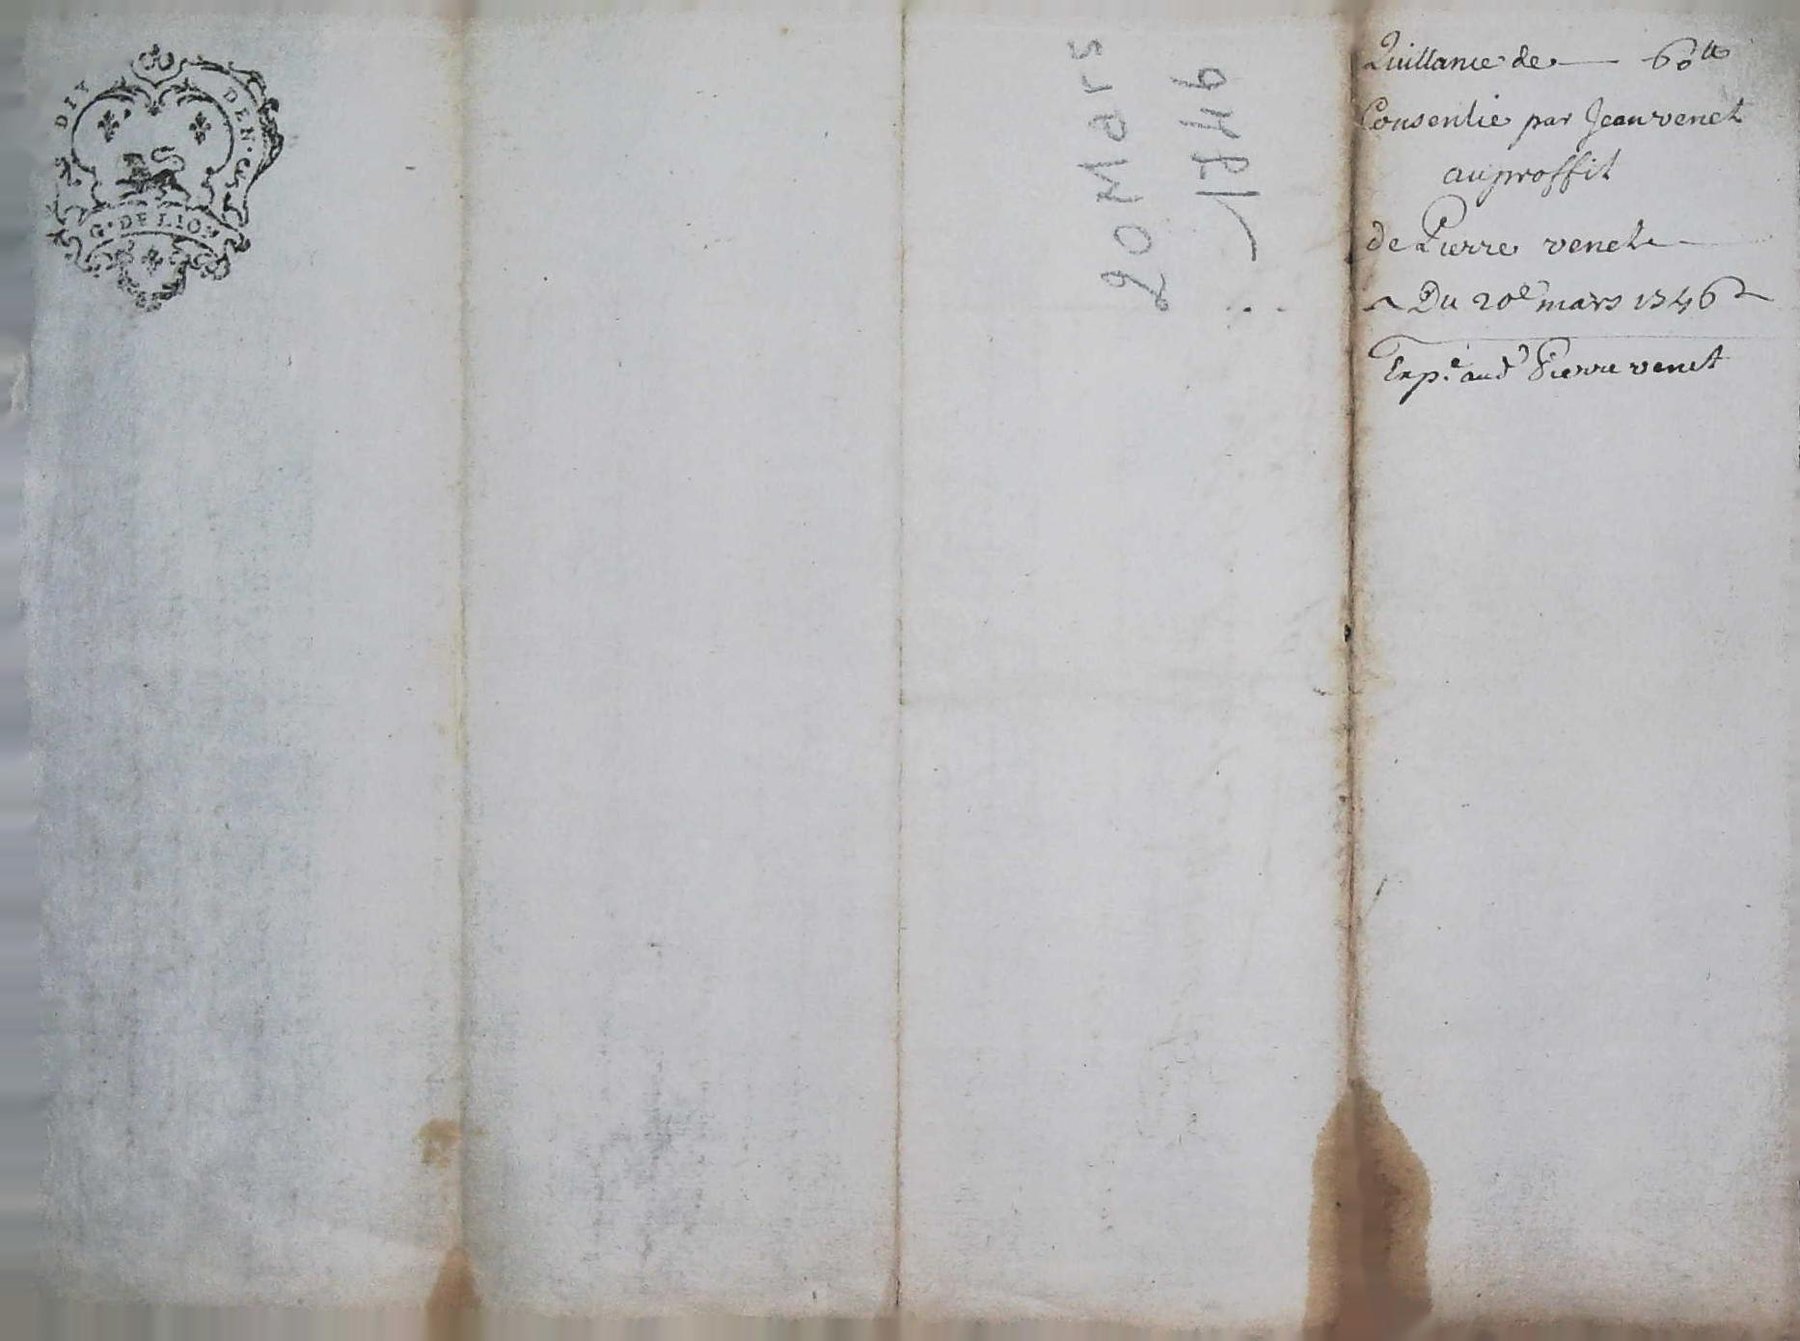 DIX DEN.
G. DE LION
20 Mars
1746
Quittance de — 60tt
Consentie par Jean venet
au proffit
de Pierre venet
Du 20e mars 1746
Exp.e aud Pierre venet